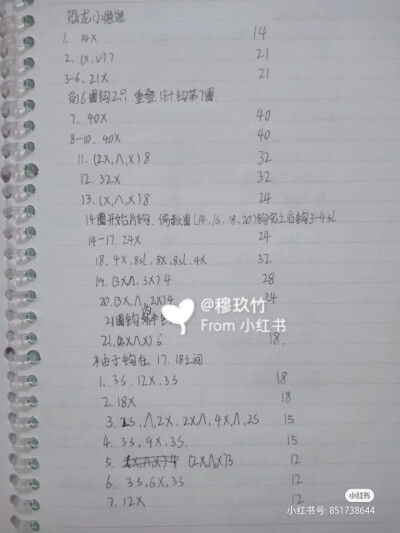 恐龙小挂谜
1. 14X 14
2. (X,V)7 21
3-6. 21X 21
前6圈钩2个,重叠1针钩第7圈.
7. 40X 40
8-10. 40X 40
11. (2X,Λ,X)8 32
12. 32X 32
13. (X,Λ,X)8 24
14圈开始片钩. 偶数圈(14.16.18.20)钩完之后钩3-4sl
14-17. 24X 24
18. 4X.8sl.8X.8sl.4X 32
19. (3X Λ, 3X)4 28
20. (3X,Λ, 2X)4 24
21圈钩
21. Λ,X)6 18.
袖子钩在17.18之间
1. 3S. 12X.3S 18
2. 18X 18
3. 2S,Λ,2X,2X,Λ,4X,Λ,2S 15
4. 3S,9X,3S. 15
5. (2X,Λ,X)3 12
6. 3S,6X,3S 12
7. 12X 12
@穆玖竹
From 小红书
小红书
小红书号: 851738644